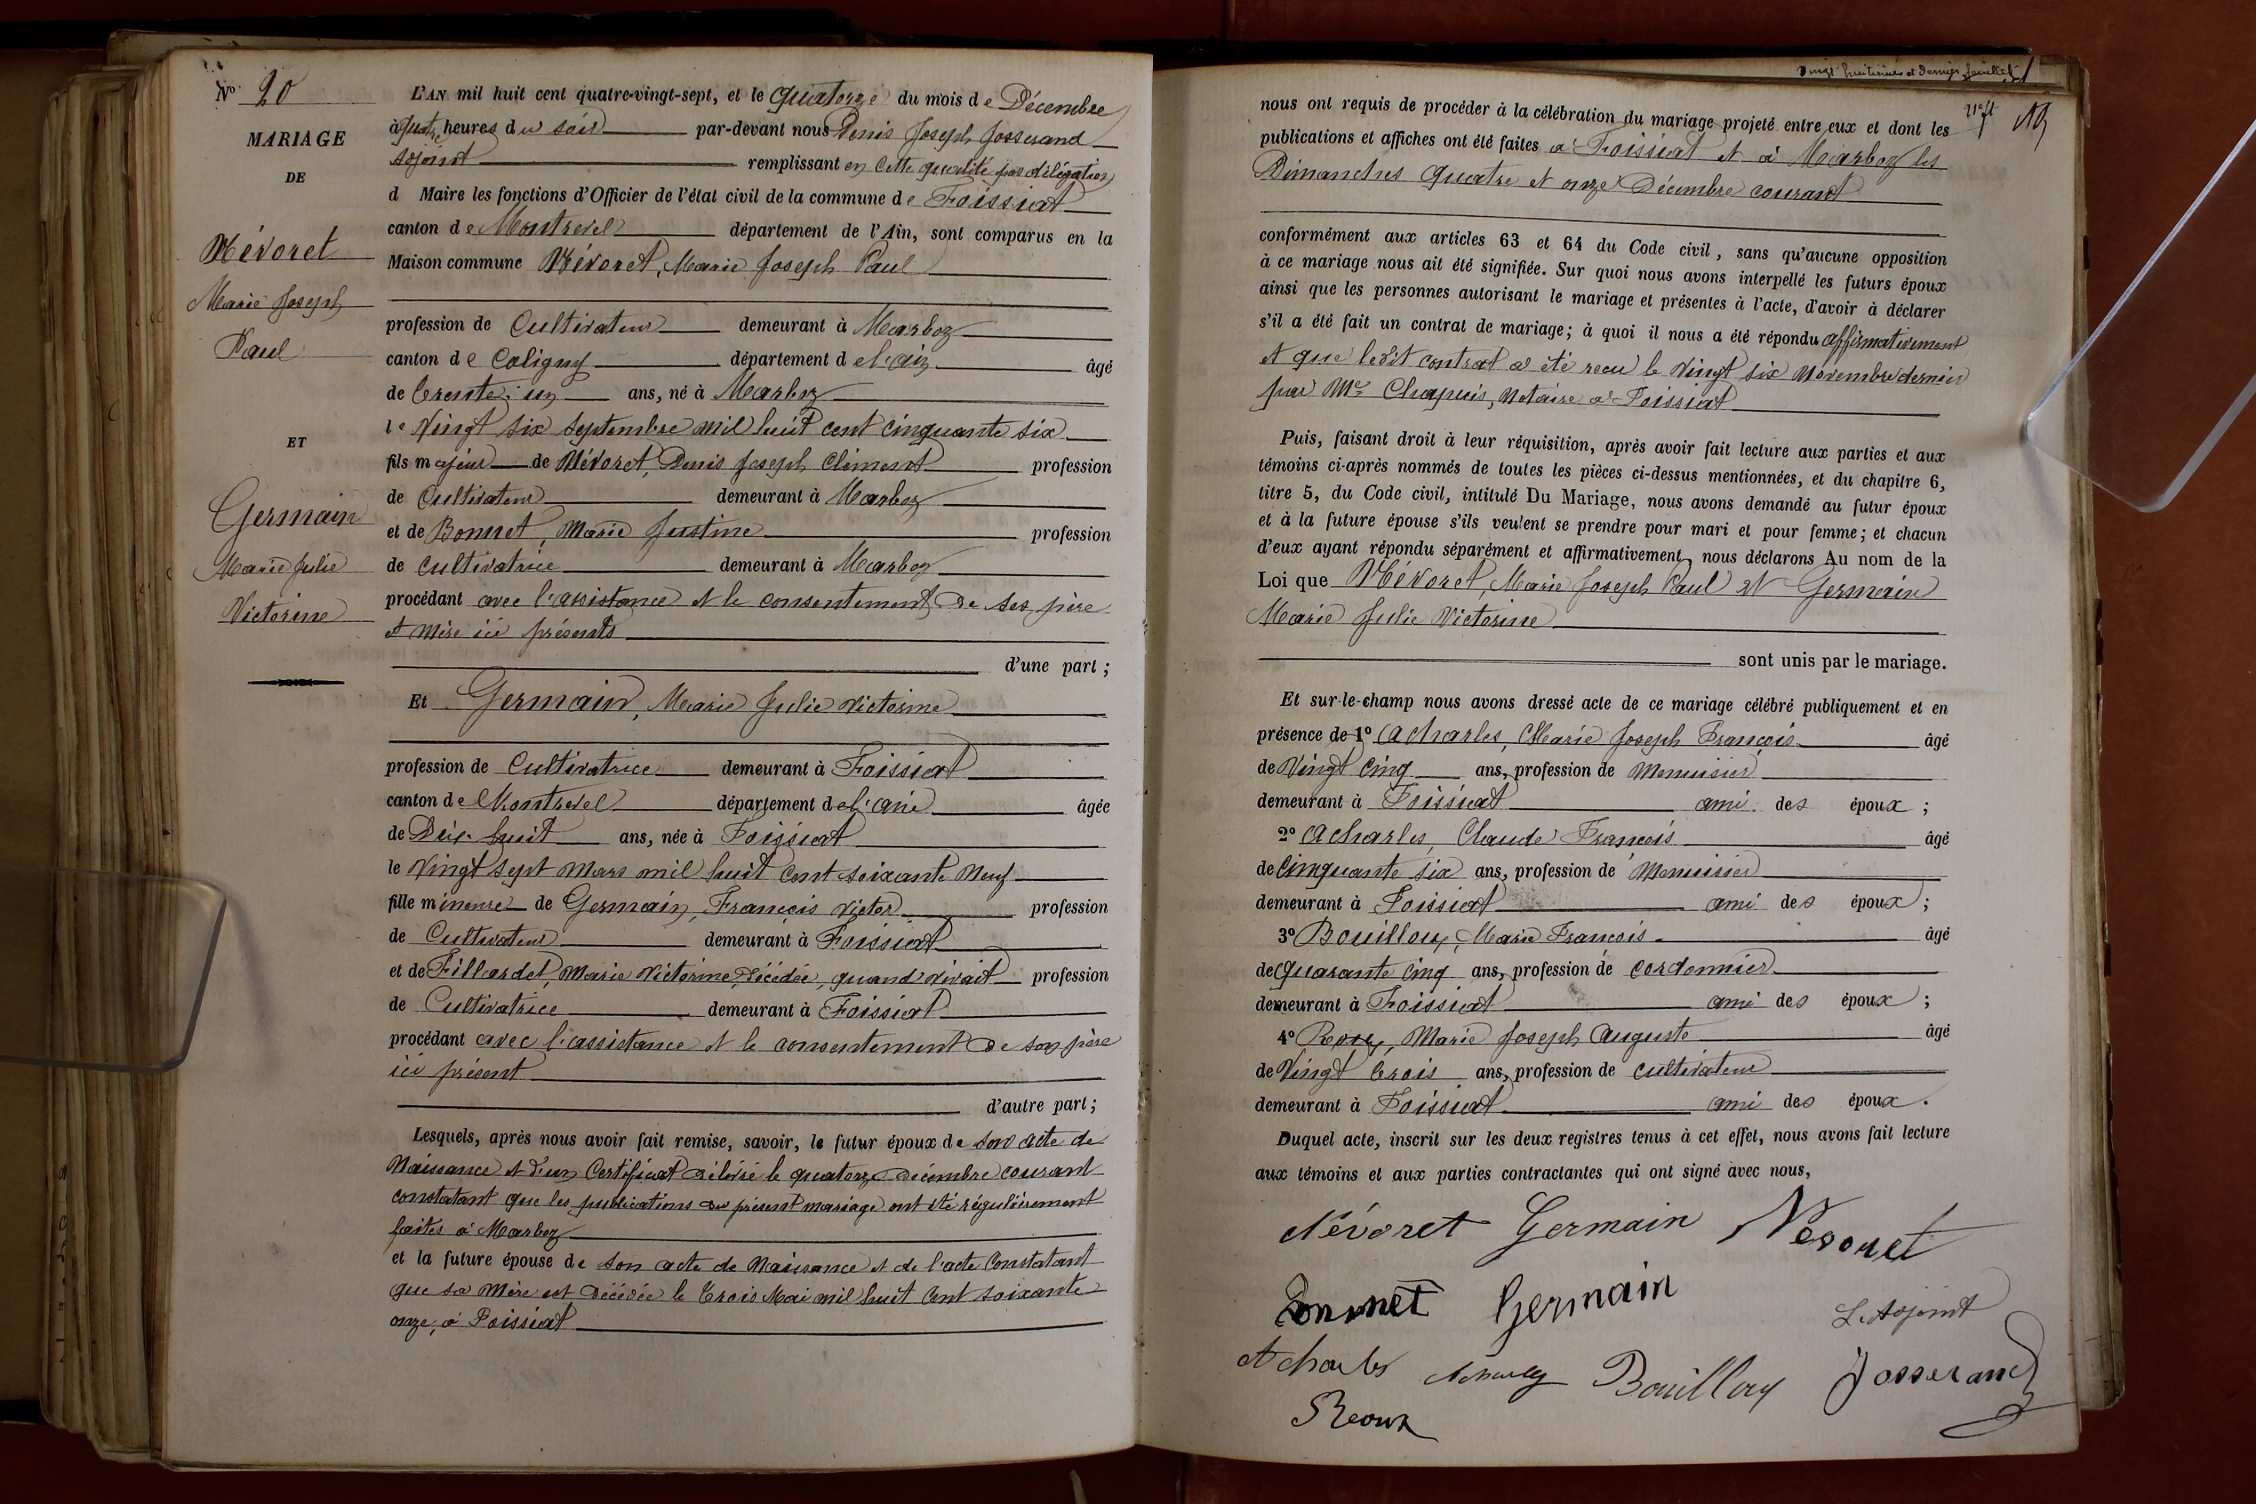 N° 20
MARIAGE
DE
Névoret
Marie Joseph
Paul
ET
Germain
Marie Julie
Victorine
L'AN mil huit cent quatre-vingt-sept, et le quatorze du mois de Décembre
à quatre heures du soir par-devant nous Denis Joseph Josserand
adjoint remplissant en cette qualité par délégation
d Maire les fonctions d'Officier de l'état civil de la commune de Foissiat
canton de Montrevel département de l'Ain, sont comparus en la
Maison commune Névoret, Marie Joseph Paul
profession de Cultivateur demeurant à Marboz
canton de Coligny département de l'ain âgé
de trente-un ans, né à Marboz
le vingt six septembre mil huit cent cinquante six
fils majeur de Névoret, Denis Joseph Clément profession
de Cultivateur demeurant à Marboz
et de Bonnet, Marie Justine profession
de cultivatrice demeurant à Marboz
procédant avec l'assistance et le consentement de ses père
et mère ici présents
d'une part ;
Et Germain, Marie Julie Victorine
profession de Cultivatrice demeurant à Foissiat
canton de Montrevel département de l'ain âgée
de Dix-huit ans, née à Foissiat
le vingt sept mars mil huit cent soixante neuf
fille mineure de Germain, François Victor profession
de Cultivateur demeurant à Foissiat
et de Fillardet, Marie Victorine, décédée, quand vivait profession
de Cultivatrice demeurant à Foissiat
procédant avec l'assistance et le consentement de son père
ici présent
d'autre part ;
Lesquels, après nous avoir fait remise, savoir, le futur époux de son acte de
Naissance et d'un Certificat délivré le quatorze décembre courant
constatant que les publications du présent mariage ont été régulièrement
faites à Marboz
et la future épouse de son acte de Naissance et de l'acte constatant
que sa mère est décédée le trois Mai mil huit cent soixante
onze, à Foissiat
vingt huitième et dernier feuillet
nous ont requis de procéder à la célébration du mariage projeté entre eux et dont les
publications et affiches ont été faites à Foissiat et à Marboz les
Dimanches quatre et onze Décembre courant
conformément aux articles 63 et 64 du Code civil, sans qu'aucune opposition
à ce mariage nous ait été signifiée. Sur quoi nous avons interpellé les futurs époux
ainsi que les personnes autorisant le mariage et présentes à l'acte, d'avoir à déclarer
s'il a été fait un contrat de mariage ; à quoi il nous a été répondu affirmativement
et que ledit contrat a été recu le vingt six Novembre dernier
par Me Chapuis, Notaire à Foissiat
Puis, faisant droit à leur réquisition, après avoir fait lecture aux parties et aux
témoins ci-après nommés de toutes les pièces ci-dessus mentionnées, et du chapitre 6,
titre 5, du Code civil, intitulé Du Mariage, nous avons demandé au futur époux
et à la future épouse s'ils veulent se prendre pour mari et pour femme ; et chacun
d'eux ayant répondu séparément et affirmativement, nous déclarons Au nom de la
Loi que Névoret, Marie Joseph Paul et Germain
Marie Julie Victorine
sont unis par le mariage.
Et sur-le-champ nous avons dressé acte de ce mariage célébré publiquement et en
présence de 1° Acharles, Marie Joseph François âgé
de Vingt cinq ans, profession de Menuisier
demeurant à Foissiat ami des époux ;
2° Acharles, Claude François âgé
de Cinquante six ans, profession de Menuisier
demeurant à Foissiat ami des époux ;
3° Bouilloux, Marie François âgé
de quarante cinq ans, profession de cordonnier
demeurant à Foissiat ami des époux ;
4° Roux, Marie Joseph Auguste âgé
de Vingt trois ans, profession de cultivateur
demeurant à Foissiat ami des époux.
Duquel acte, inscrit sur les deux registres tenus à cet effet, nous avons fait lecture
aux témoins et aux parties contractantes qui ont signé avec nous,
Névoret Germain Névoret
Bonnet Germain
L'Adjoint
Acharles Acharles Bouilloux Josserand
Reoux